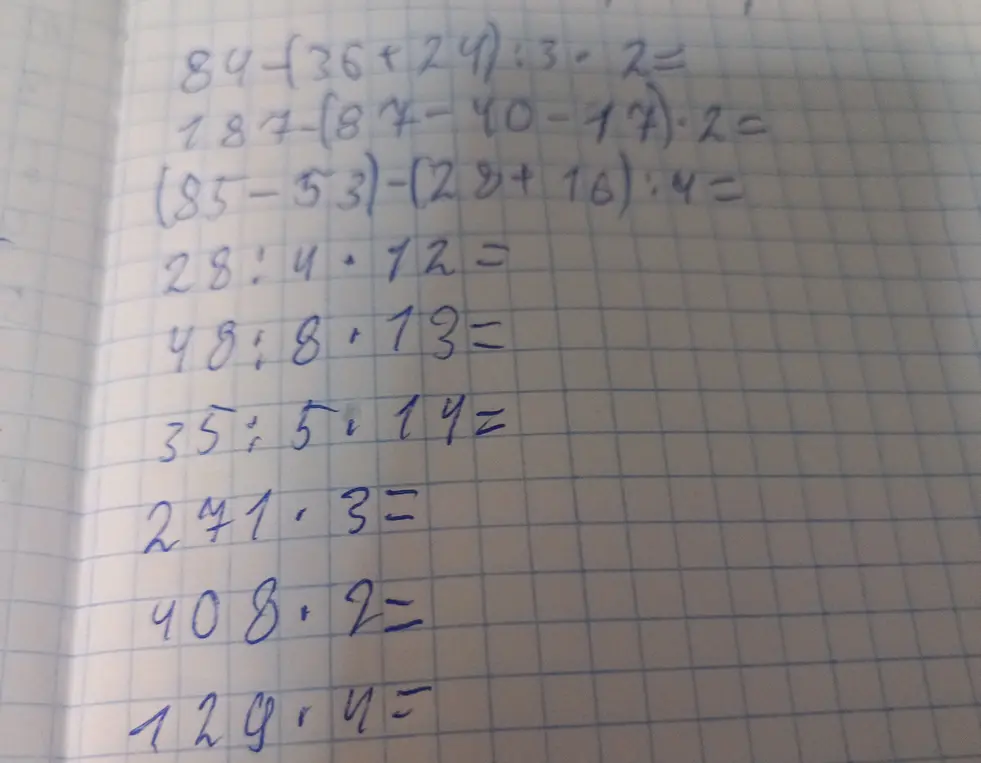 84-(36+24):3·2=
187-(87-40-17)·2=
(85-53)-(28+16):4=
28:4·12=
48:8·13=
35:5·14=
271·3=
408·2=
129·4=